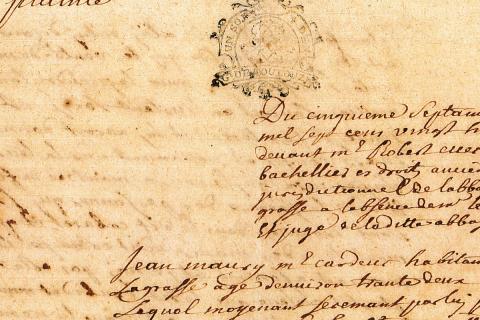 plainte
UN SOL
G. DE TOULOUZE
Du cinquieme Septam
mil sept cens vingt h
devant mr Robert
bachellier es droits ancie
jurisdictionnel de labba
grasse a labsence de mr le
Et juge de la ditte abbay
Jean maury mr cardeur habitan
Lagrasse age denviron trante deux
Lequel moyenant serement par luy p